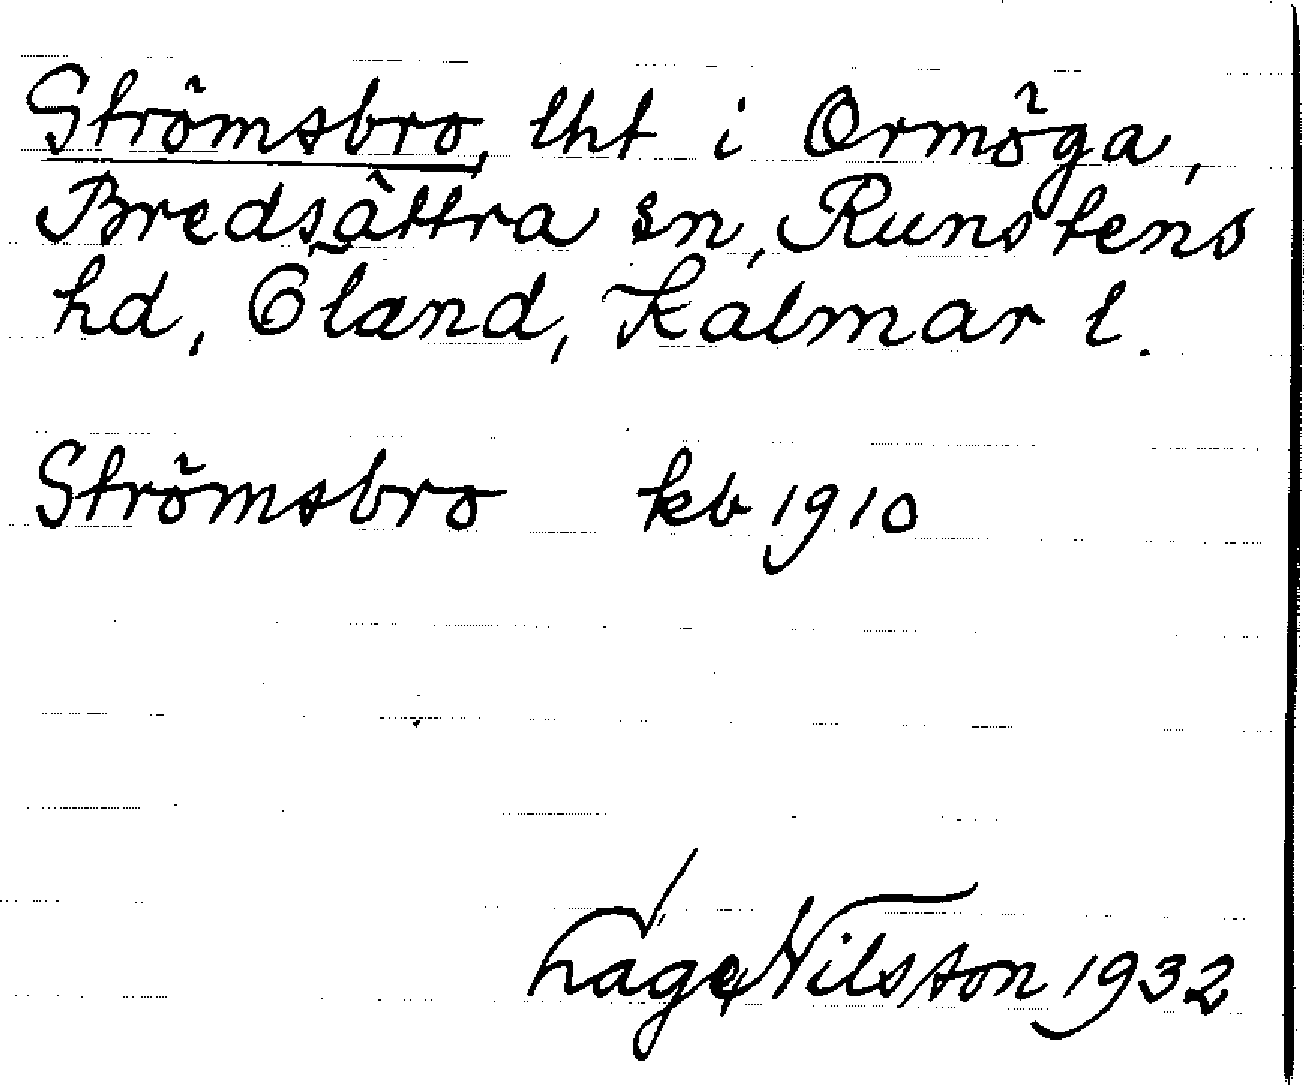 Strömsbro, lht i Ormöga,
Bredsättra sn, Runstens
hd, Öland, Kalmar l.
Strömsbro kb 1910
Nilsson 1932